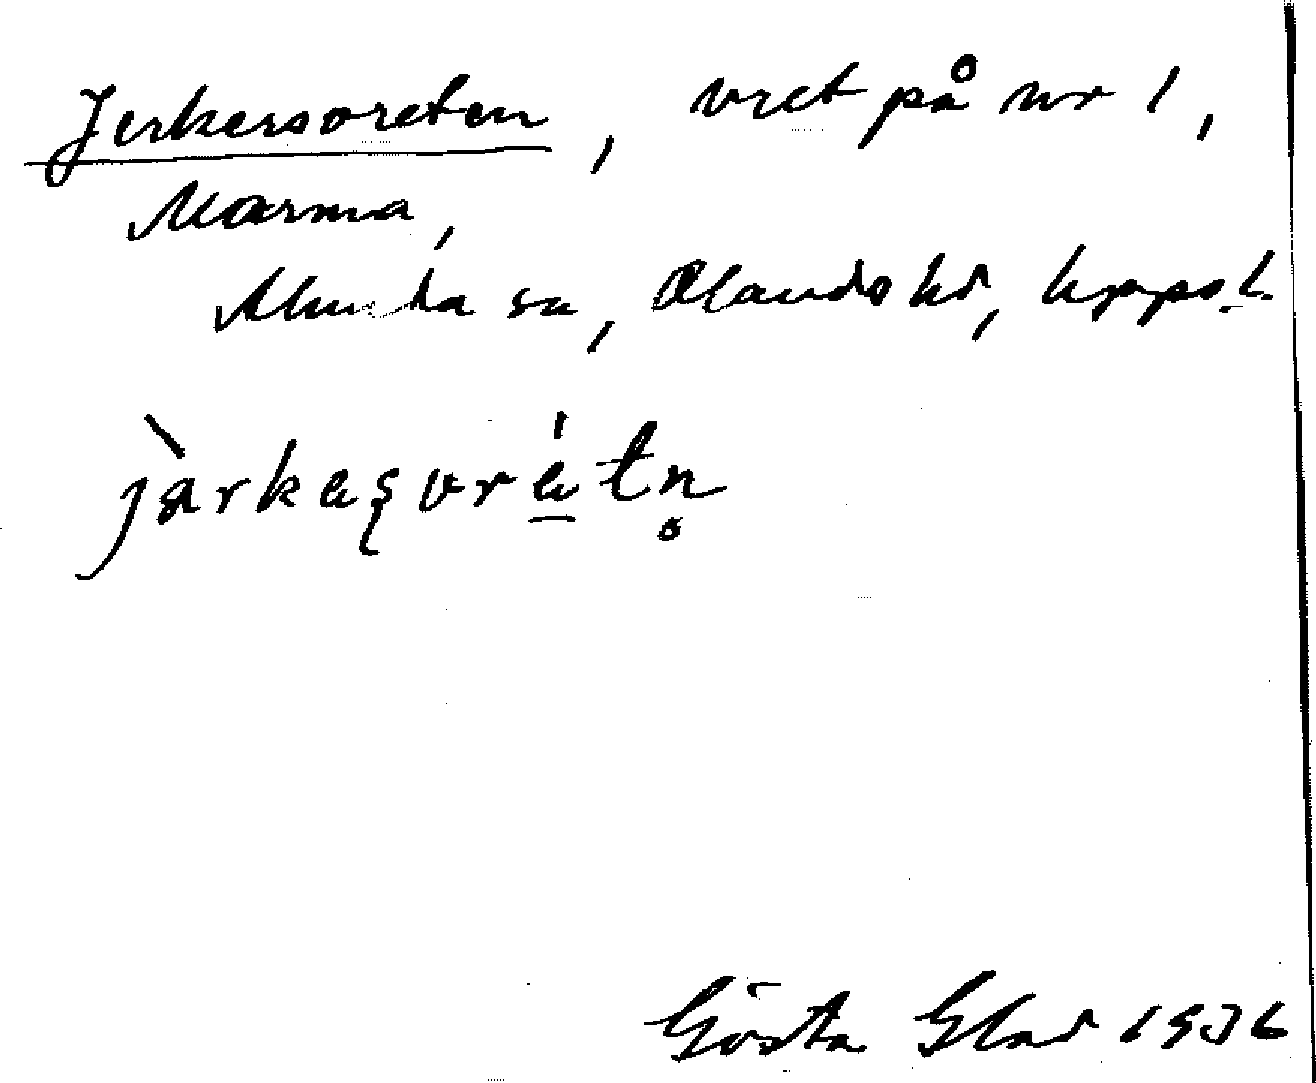 Jerkersvreten, vret på nr 1,
Marma,
Munta sn, Olands hd, Uppsl.
jàrkesvrétn̥
Gösta Glad 1936